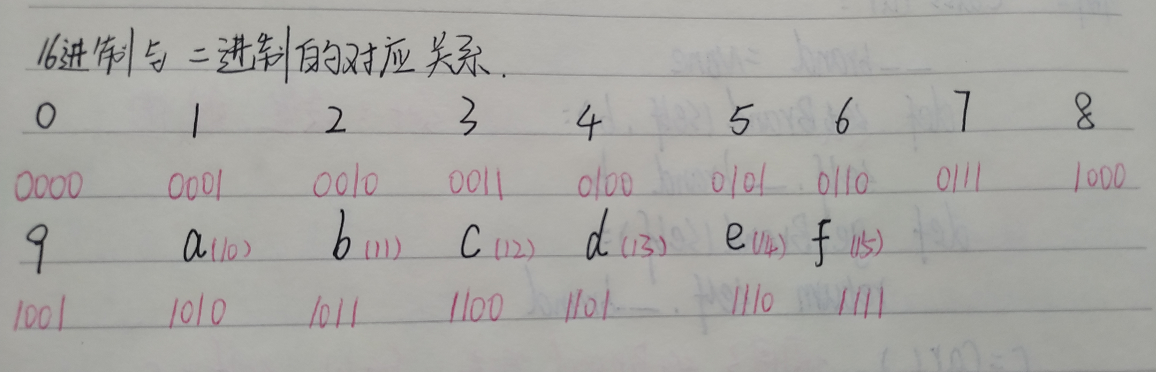 16进制与二进制的对应关系.
0 1 2 3 4 5 6 7 8
0000 0001 0010 0011 0100 0101 0110 0111 1000
9 a(10) b(11) c(12) d(13) e(14) f(15)
1001 1010 1011 1100 1101 1110 1111